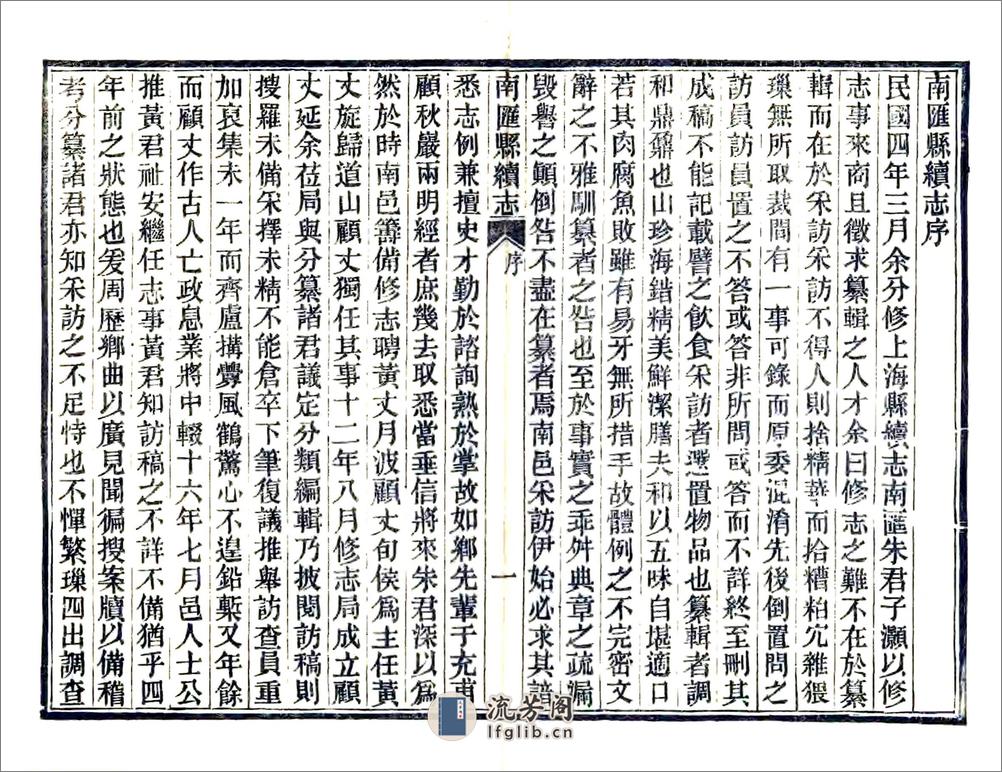 南匯縣續志序
民國四年三月余分修上海縣續志南匯朱君子灝以修
志事來商且徵求纂輯之人才余曰修志之難不在於纂
輯而在於采訪采訪不得人則捨精華而拾糟粕冗雜猥
璅無所取裁間有一事可錄而原委混淆先後倒置問之
訪員訪員置之不答或答非所問或答而不詳終至刪其
成稿不能記載譬之飲食采訪者選置物品也纂輯者調
和鼎鼐也山珍海錯精美鮮潔膳夫和以五味自堪適口
若其肉腐魚敗雖有易牙無所措手故體例之不完密文
辭之不雅馴纂者之咎也至於事實之乖舛典章之疏漏
毀譽之顛倒咎不盡在纂者焉南邑采訪伊始必求其諳
南匯縣續志 序 一
悉志例兼擅史才勤於諮詢熟於掌故如鄉先輩于充甫
顧秋巖兩明經者庶幾去取悉當垂信將來朱君深以為
然於時南邑籌備修志聘黃丈月波顧丈旬侯為主任黃
丈旋歸道山顧丈獨任其事十二年八月修志局成立顧
丈延余莅局與分纂諸君議定分類編輯乃披閱訪稿則
搜羅未備采擇未精不能倉卒下筆復議推舉訪查員重
加裒集未一年而齊盧搆釁風鶴驚心不遑鉛槧又年餘
而顧丈作古人亡政息業將中輟十六年七月邑人士公
推黃君祉安繼任志事黃君知訪稿之不詳不備猶乎四
年前之狀態也爰周歷鄉曲以廣見聞徧搜案牘以備稽
考分纂諸君亦知采訪之不足恃也不憚繁璅四出調查
流芳阁
lfglib.cn